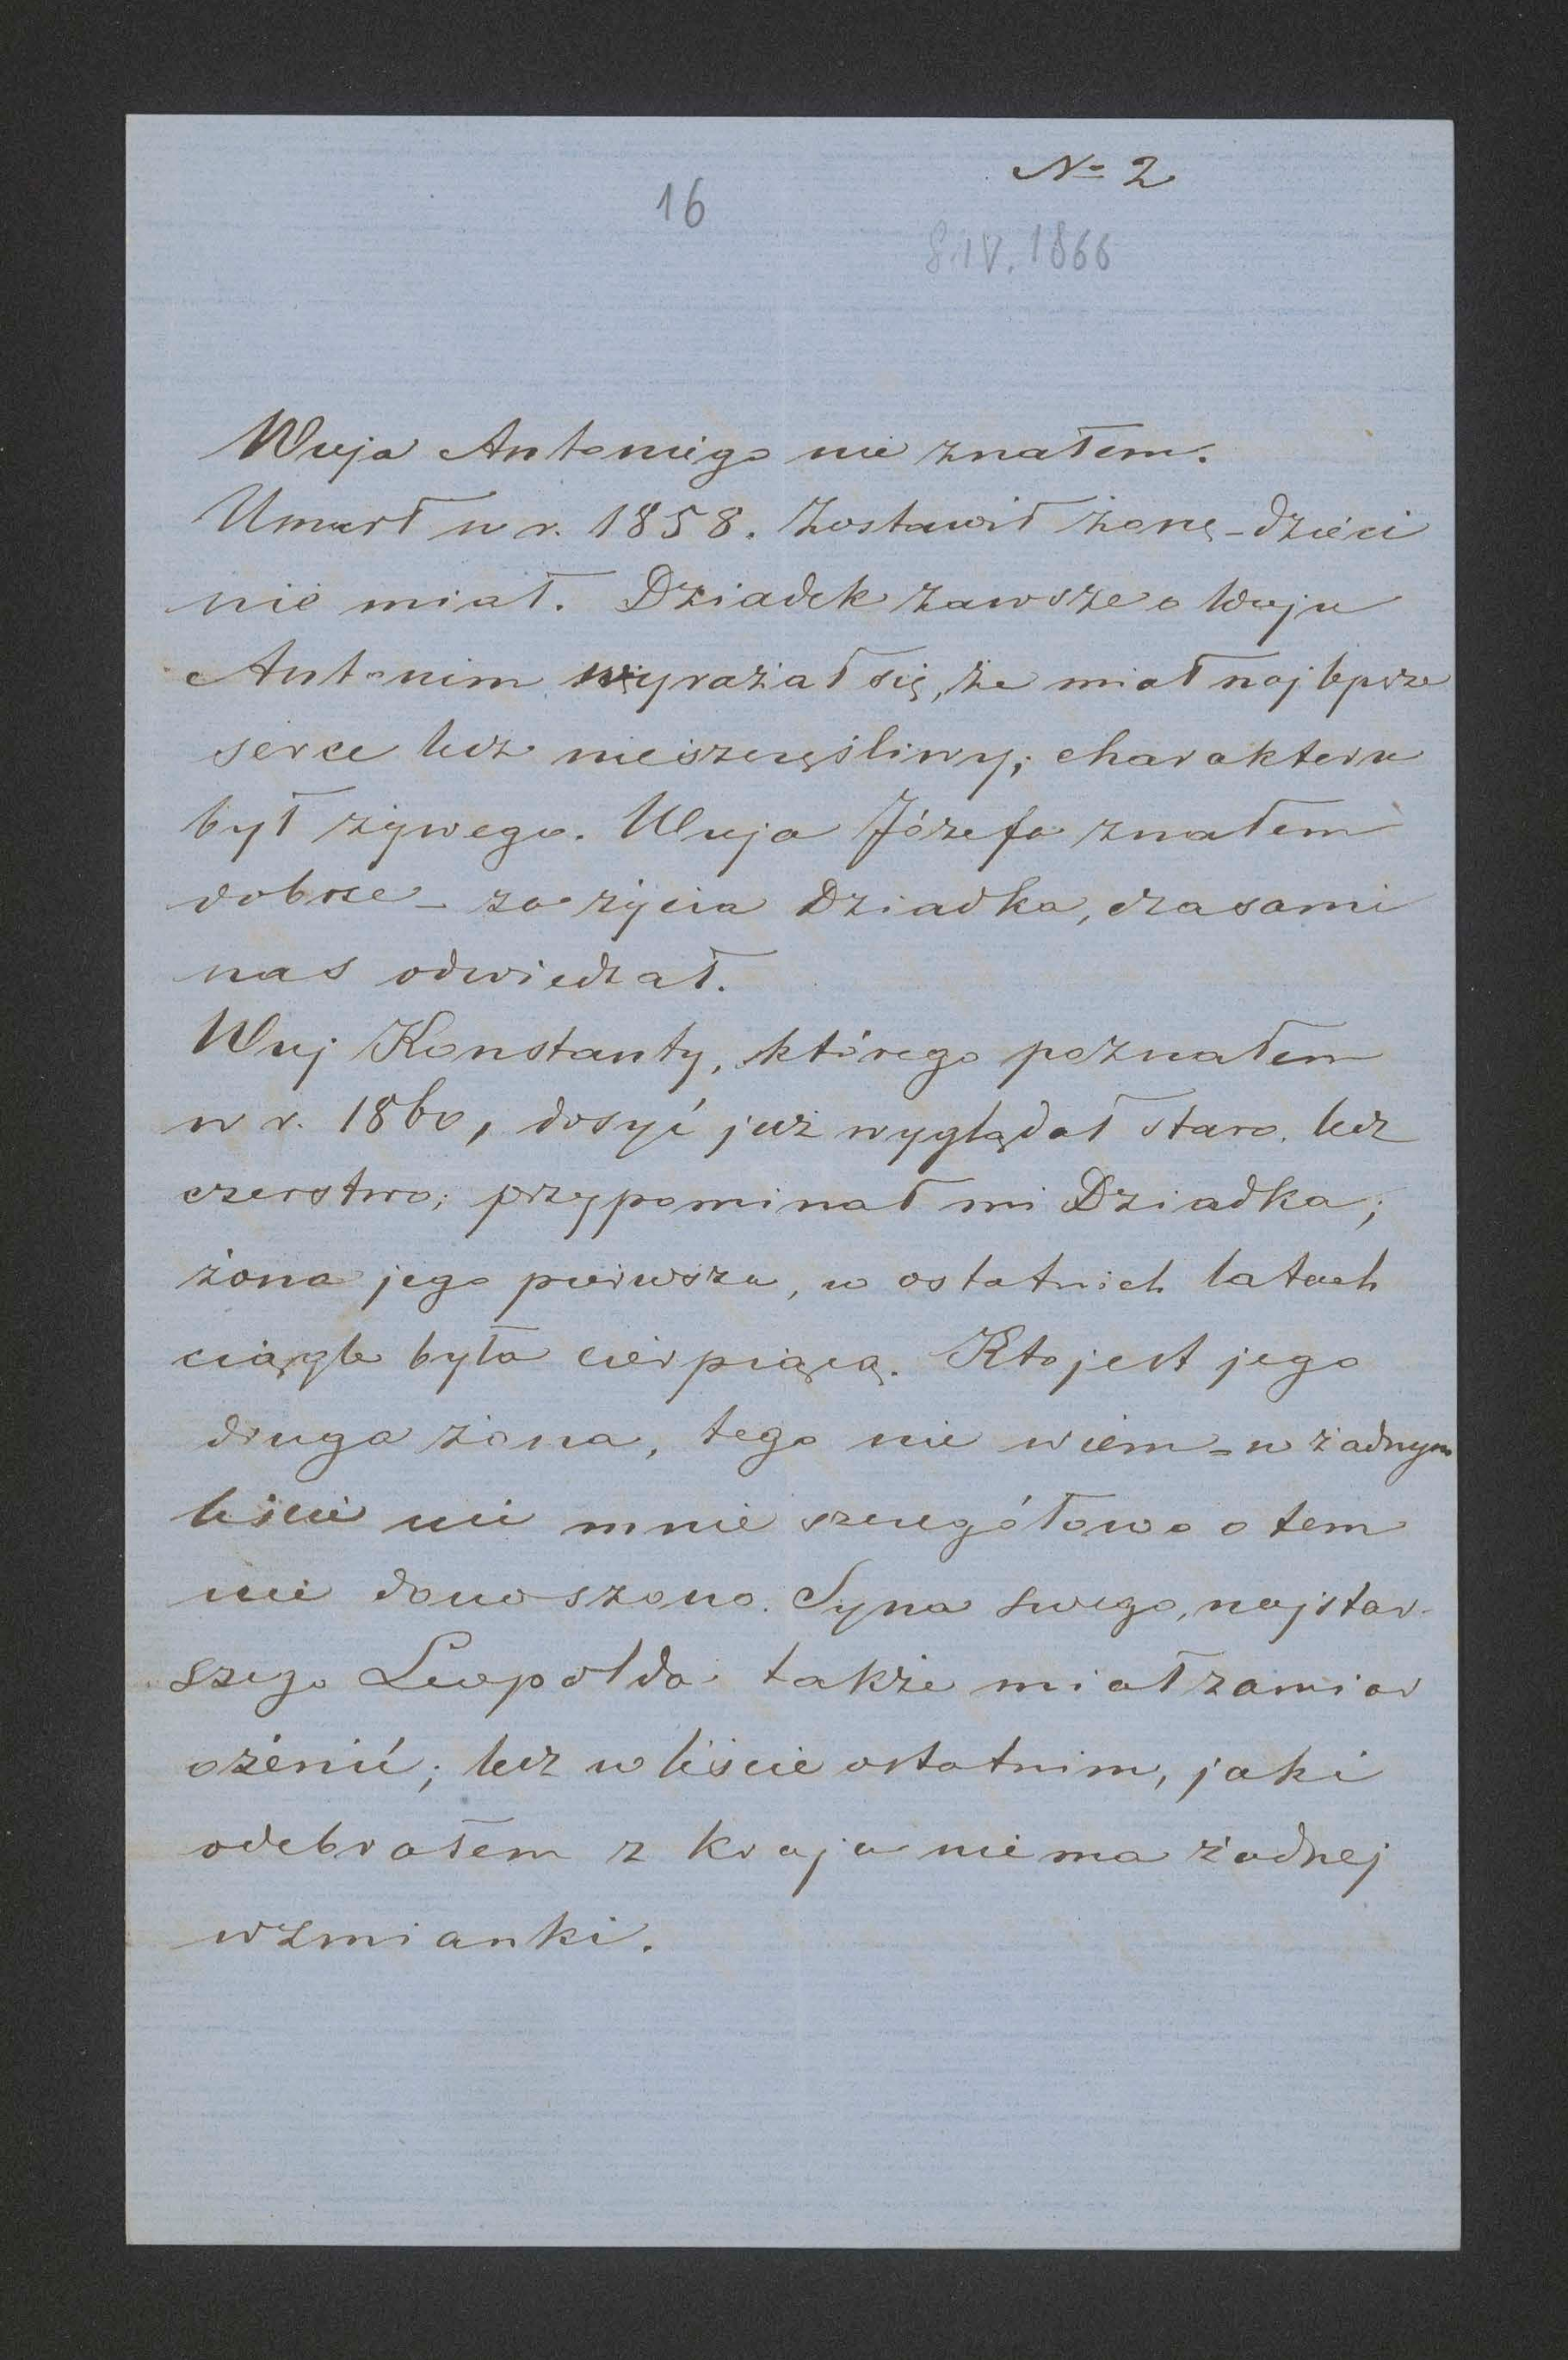 № 2
16
8.IV.1866
Wuja Antoniego nie znałem.
Umarł w r. 1858. Zostawił żonę - dzieci
nie miał. Dziadek zawsze o Wuju
Antonim wyrażał się, że miał najlepsze
serce lecz nieszczęśliwy; charakteru
był żywego. Wuja Józefa znałem
dobrze - za życia Dziadka, czasami
nas odwiedzał.
Wuj Konstanty, którego poznałem
w r. 1860, dosyć już wyglądał staro, lecz
czerstwo; przypominał mi Dziadka;
żona jego pierwsza, w ostatnich latach
ciągle była cierpiącą. Kto jest jego
druga żona, tego nie wiem - w żadnym
liście nie mnie szczegółowo o tem
nie donoszono. Syna swego, najstar-
szego Leopolda także miał zamiar
ożenić; lecz w liście ostatnim, jaki
odebrałem z kraju niema żadnej
wzmianki.